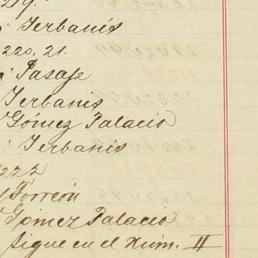 219.
Terbanis
220. 21.
Pasaje
Terbanis
Gómez Palacio
Terbanis
222
Torreón
Gómez Palacio
sigue en el Núm. II